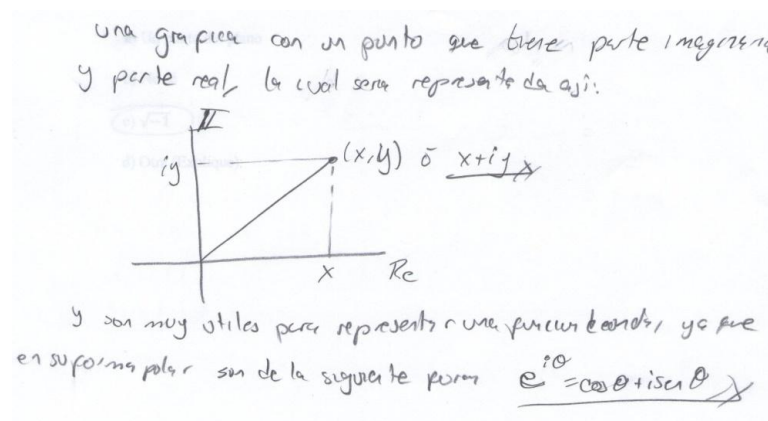 una grafica con un punto que tiene parte imaginaria
y parte real, la cual sera representada asi:
II
iy
(x,y) ó x+iy
x
Re
y son muy utiles para representar una funcion de onda, ya que
en su forma polar son de la siguiente forma e^{iθ}=cosθ+isenθ